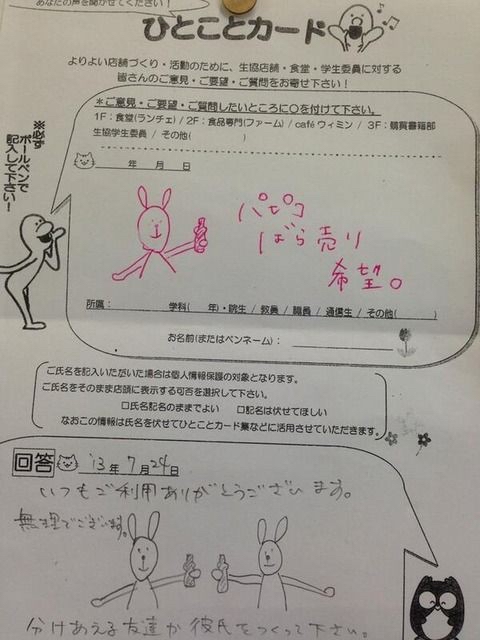 あなたの声を聞かせてください！
ひとことカード
よりよい店舗づくり・活動のために、生協店舗・食堂・学生委員に対する
皆さんのご意見・ご要望・ご質問をお寄せ下さい！
※必ず
ボールペンで
記入して下さい！
＊ご意見・ご要望・ご質問したいところに○を付けて下さい。
1F：食堂(ランチェ) / 2F：食品専門(ファーム) / caféウィミン / 3F：購買書籍部
生協学生委員 / その他( )
年 月 日
パピコ
ばら売り
希望。
所属： 学科( 年)・院生 / 教員 / 職員 / 通信生 / その他( )
お名前(またはペンネーム)：
ご氏名を記入いただいた場合は個人情報保護の対象となります。
ご氏名をそのまま店頭に表示する可否を選択して下さい。
□氏名記名のままでよい □記名は伏せてほしい
なおこの情報は氏名を伏せてひとことカード集などに活用させていただきます。
回答 '13年7月24日
いつもご利用ありがとうございます。
無理でございます。
分けあえる友達か彼氏をつくって下さい。